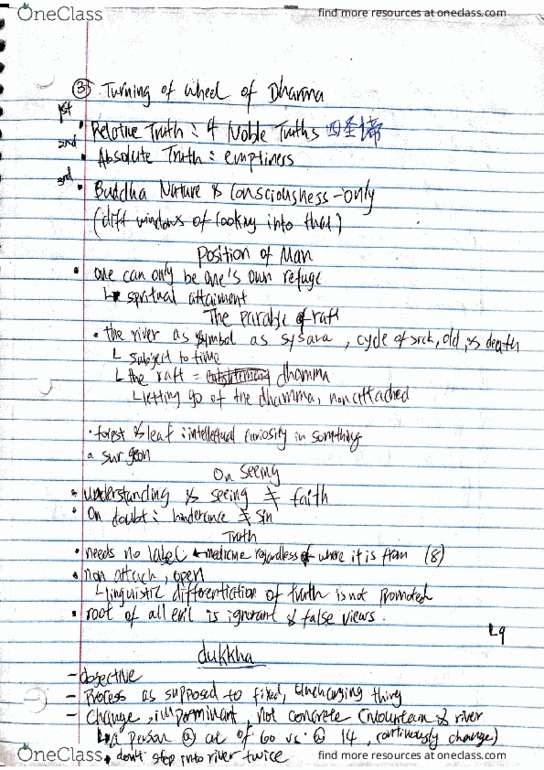 OneClass
find more resources at oneclass.com
③ Turning of wheel of Dharma
1st • Relative Truth : 4 Noble Truths 四圣谛
2nd • Absolute Truth : emptiness
3rd • Buddha Nature & Consciousness-only
(diff windows of looking into that)
Position of Man
• one can only be one's own refuge
↳ spiritual attaiment
The Parable of raft
• the river as symbol as sysara, cycle of sick, old, & death
└ subject to time
└ the raft = dhamma
└ letting go of the dhamma, non attached
• forest & leaf : intellectual curiosity in something
• surgeon
On Seeing
• understanding & seeing ≠ faith
• On doubt : hinderance ≠ sin
Truth
• needs no label ← medicine regardless of where it is from (8)
• non attach, open
└ linguistic differentiation of truth is not promoted
• root of all evil is ignorant & false views.
L9
dukkha
- objective
- Process as supposed to fixed, unchanging thing
- Change, imperminant, not concrete (mountain & river
↳ a person @ at of 60 vs. @ 14, continuously change)
• don't step into river twice
OneClass
find more resources at oneclass.com